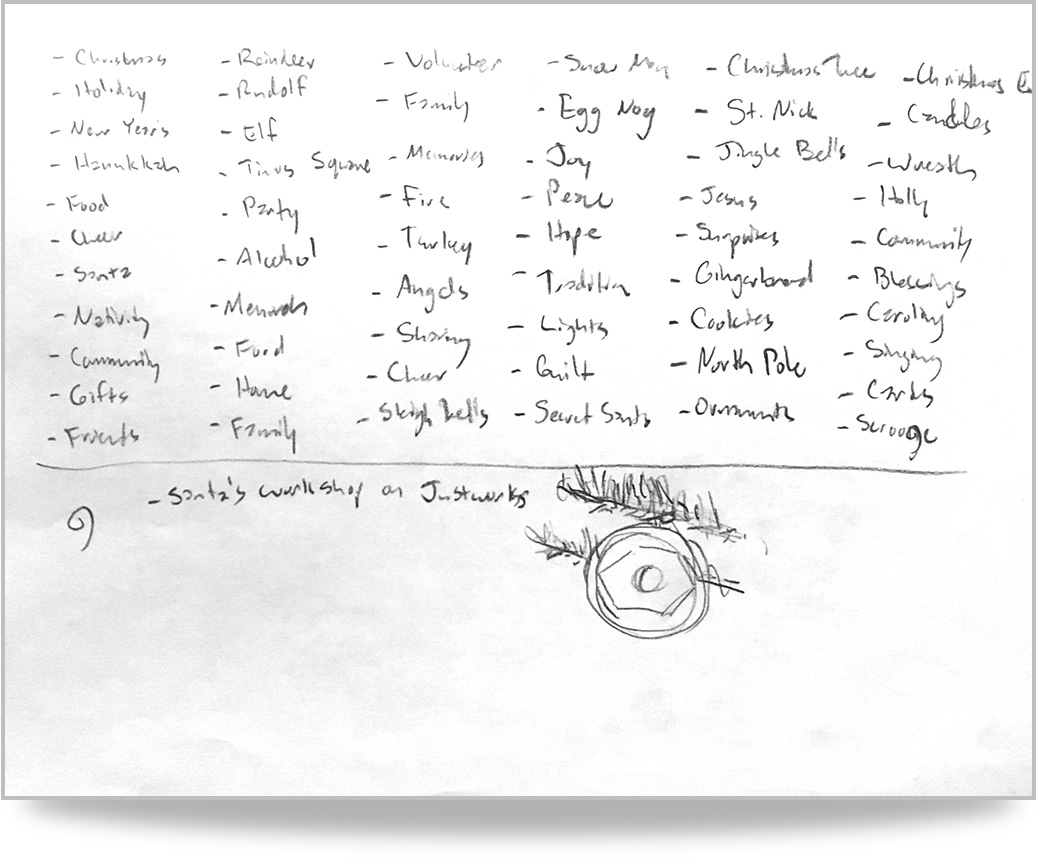 - Christmas
- Holiday
- New Year's
- Hanukkah
- Food
- Cheer
- Santa
- Nativity
- Community
- Gifts
- Friends
- Reindeer
- Rudolf
- Elf
- Times Square
- Party
- Alcohol
- Menorah
- Food
- Home
- Family
- Volunteer
- Family
- Memories
- Fire
- Turkey
- Angels
- Sharing
- Cheer
- Sleigh bells
- Snow Man
- Egg Nog
- Joy
- Peace
- Hope
- Tradition
- Lights
- Guilt
- Secret Santa
- Christmas Tree
- St. Nick
- Jingle Bells
- Jesus
- Surprises
- Gingerbread
- Cookies
- North Pole
- Ornaments
- Christmas
- Candles
- Wreath
- Holly
- Community
- Blessings
- Caroling
- Singing
- Cards
- Scrooge
- Santa's workshop on Justworks